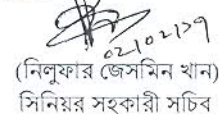 ০২/০২/১৭
(নিলুফার জেসমিন খান)
সিনিয়র সহকারী সচিব